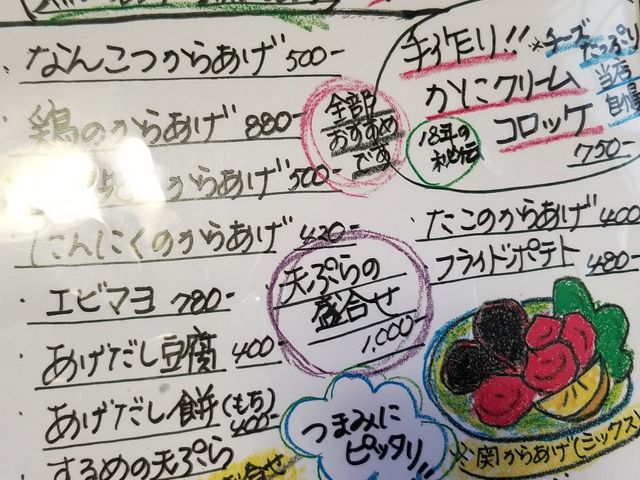 なんこつからあげ 500-
鶏のからあげ 880-
からあげ 500-
にんにくのからあげ 430-
エビマヨ 780-
あげだし豆腐 400-
あげだし餅(もち)
400-
するめの天ぷら
全部
おすすめ
です
天ぷらの
盛合せ
1,000-
つまみに
ピッタリ!!
手作り!!
かにクリーム
コロッケ
750-
*チーズ
たっぷり
当店
自慢
18年の
秘伝
たこのからあげ 400
フライドポテト 480-
※関からあげ(ミックス)